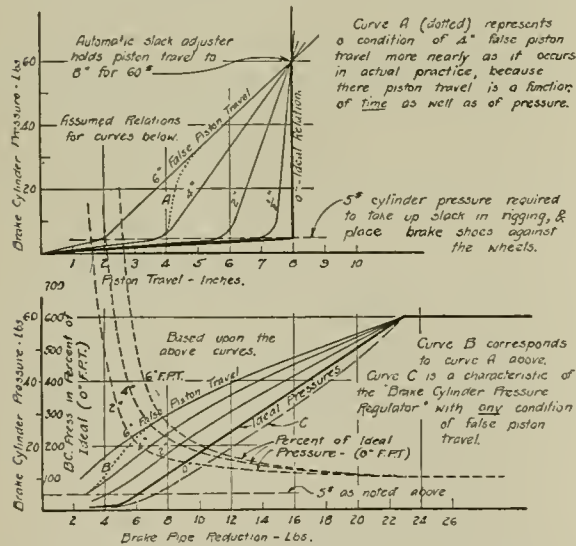 Automatic slack adjuster
holds piston travel to
8" for 60#
Curve A (dotted) represents
a condition of 4" false piston
travel more nearly as it occurs
in actual practice, because
there piston travel is a function
of time as well as of pressure.
Brake Cylinder Pressure - Lbs.
60
40
20
Assumed Relations
for curves below.
6" False Piston Travel
A
4"
2"
0" - Ideal Relation.
5# cylinder pressure required
to take up slack in rigging, &
place brake shoes against
the wheels.
1 2 3 4 5 6 7 8 9 10
Piston Travel - Inches.
Brake Cylinder Pressure - Lbs.
B.C. Press in Percent of
Ideal (0" F.P.T.)
700
60 600
500
40 400
300
20 200
100
Based upon the
above curves.
6" F.P.T.
2"
4"
6" False Piston Travel
B
2"
0"
Ideal Pressures
C
Percent of Ideal
Pressure - (0" F.P.T)
Curve B corresponds
to curve A above.
Curve C is a characteristic of
the "Brake Cylinder Pressure
Regulator" with any condition
of false piston
travel.
5# as noted above
2 4 6 8 10 12 14 16 18 20 22 24 26
Brake Pipe Reduction - Lbs.